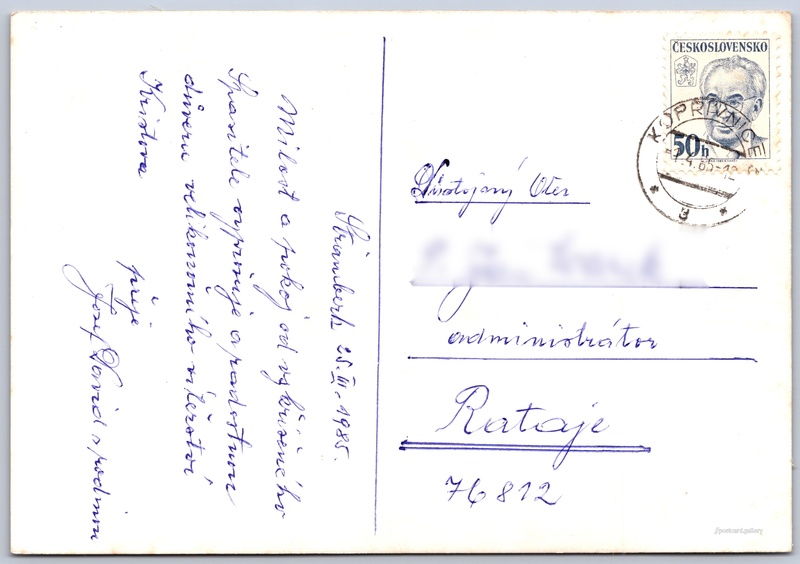 Štramberk 25.III.1985.
Milost a pokoj od vzkříšeného
Spasitele vyprošuje a radostnou
důvěru velikonočního vítězství
Kristova
přeje
Josef David s rodinou
ČESKOSLOVENSKO
50h
KOPŘIVNICE
Důstojný Otec
administrátor
Rataje
76812
postcard.gallery